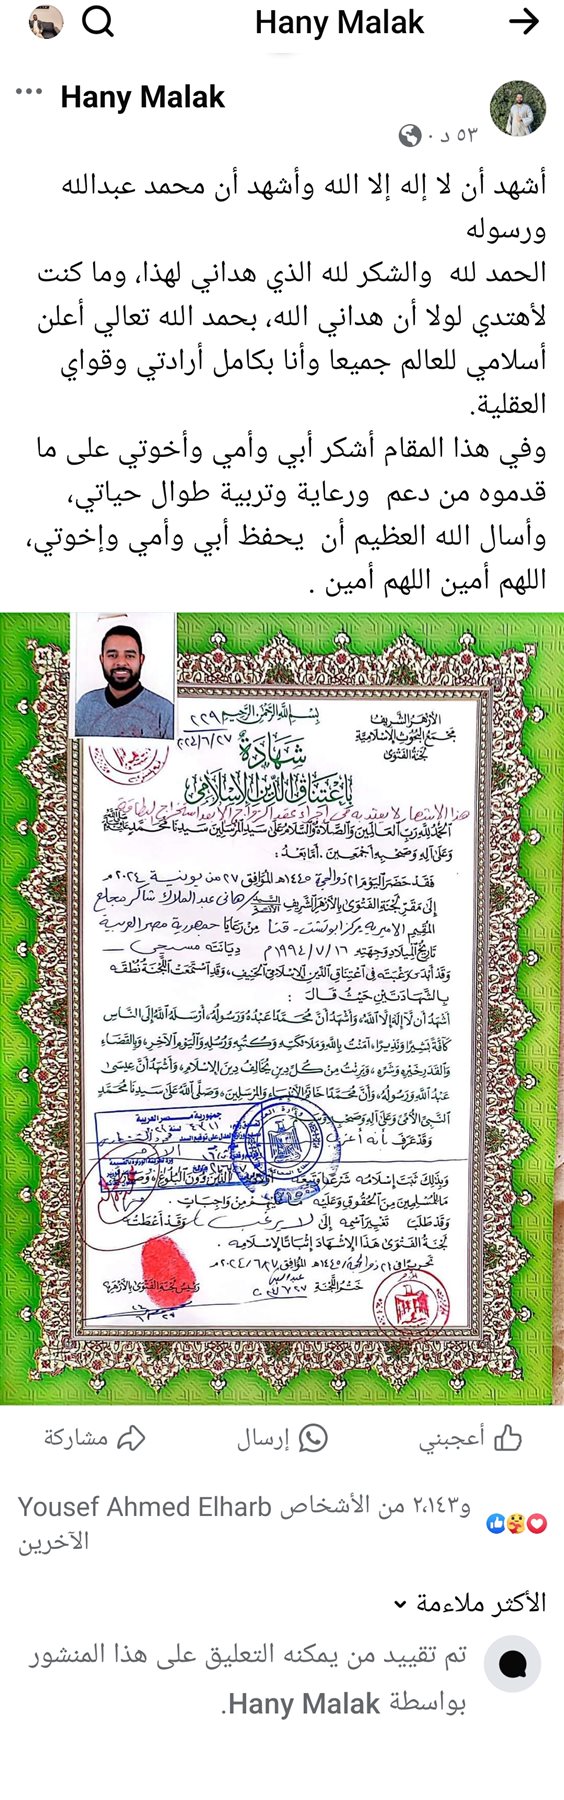 Hany Malak
Hany Malak
٥٣ د ·
أشهد أن لا إله إلا الله وأشهد أن محمد عبدالله
ورسوله
الحمد لله والشكر لله الذي هداني لهذا، وما كنت
لأهتدي لولا أن هداني الله، بحمد الله تعالي أعلن
أسلامي للعالم جميعا وأنا بكامل أرادتي وقواي
العقلية.
وفي هذا المقام أشكر أبي وأمي وأخوتي على ما
قدموه من دعم ورعاية وتربية طوال حياتي،
وأسال الله العظيم أن يحفظ أبي وأمي وإخوتي،
اللهم أمين اللهم أمين .
الأزهر الشريف
مجمع البحوث الإسلامية
لجنة الفتوى
بسم الله الرحمن الرحيم
٢٢٩
شهادة
باعتناق الدين الإسلامي
هذا الإشهار لا يعتد به في إجراء عقد الزواج إلا بعد استخراج البطاقة
الحمد لله رب العالمين والصلاة والسلام على سيد المرسلين سيدنا محمد
وعلى آله وصحبه أجمعين . أما بعد :
فقد حضر اليوم ٢١ ذو الحجة ١٤٤٥ هـ الموافق ٢٧ من يونية ٢٠٢٤ م
إلى مقر لجنة الفتوى بالأزهر الشريف السيد هاني عبد الملاك شاكر
المقيم الأميرية مركز أبوتشت - قنا من رعايا جمهورية مصر العربية
تاريخ الميلاد وجهته ١٦ / ٧ / ١٩٩٤ م ديانته مسيحي
وقد أبدى رغبته في اعتناق الدين الإسلامي الحنيف، وقد استمعت اللجنة نطقه
بالشهادتين حيث قال :
أشهد أن لا إله إلا الله، وأشهد أن محمدا عبده ورسوله، أرسله الله إلى الناس
كافة بشيرا ونذيرا، آمنت بالله وملائكته وكتبه ورسله واليوم الآخر، وبالقضاء
والقدر خيره وشره، وبرئت من كل دين يخالف دين الإسلام، وأشهد أن عيسى
عبد الله ورسوله، وأن محمدا خاتم الأنبياء والمرسلين، وصلى الله على سيدنا محمد
النبي الأمي وعلى آله وصحبه
جمهورية مصر العربية
وقد عرف بأنه
وبذلك ثبت إسلامه شرعا
ما للمسلمين من الحقوق وعليه ما عليهم من واجبات .
وقد طلب تغيير اسمه إلى ( لا يرغب ) وقد أعطته
لجنة الفتوى هذا الإشهاد إثباتا لإسلامه .
تحريرا في ٢١ ذو الحجة ١٤٤٥ هـ الموافق ٢٧ / ٦ / ٢٠٢٤ م
ختم اللجنة
رئيس لجنة الفتوى بالأزهر
أعجبني
إرسال
مشاركة
Yousef Ahmed Elharb و٢،١٤٣ من الأشخاص
الآخرين
الأكثر ملاءمة
تم تقييد من يمكنه التعليق على هذا المنشور
بواسطة Hany Malak.